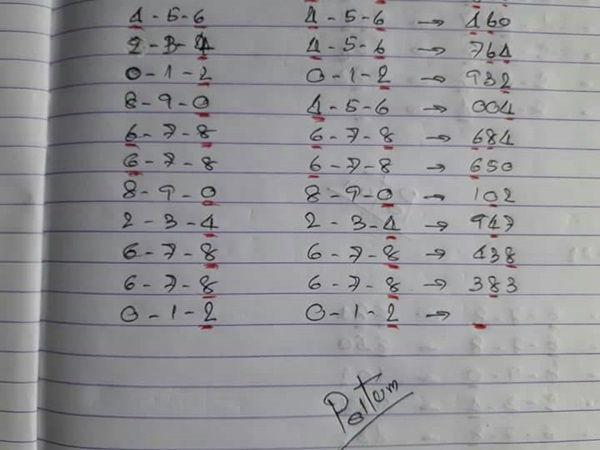 4-5-6 4-5-6 → 460
2-3-4 4-5-6 → 764
0-1-2 0-1-2 → 932
8-9-0 4-5-6 → 004
6-7-8 6-7-8 → 684
6-7-8 6-7-8 → 650
8-9-0 8-9-0 → 102
2-3-4 2-3-4 → 947
6-7-8 6-7-8 → 438
6-7-8 6-7-8 → 383
0-1-2 0-1-2 →